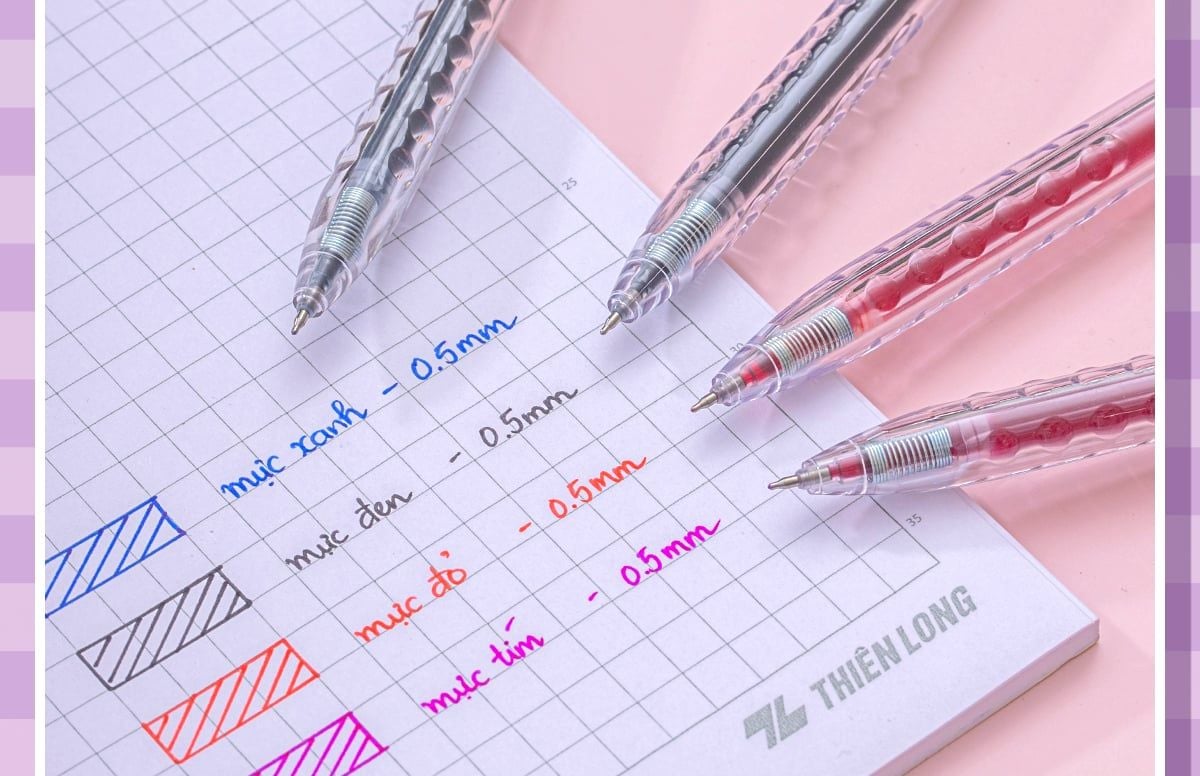 25
30
35
mực xanh - 0.5mm
mực đen - 0.5mm
mực đỏ - 0.5mm
mực tím - 0.5mm
THIÊN LONG